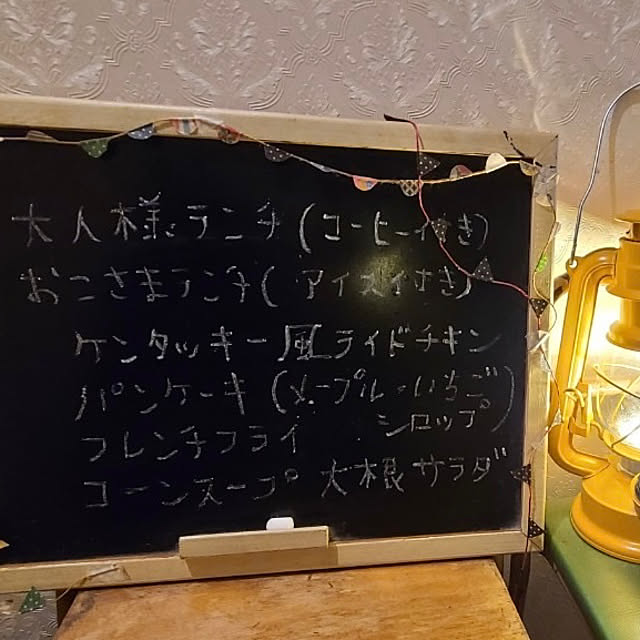 大人様ランチ(コーヒー付き)
おこさまランチ(アイス付き)
ケンタッキー風ライドチキン
パンケーキ(メープル・いちご
シロップ)
フレンチフライ
コーンスープ 大根サラダ